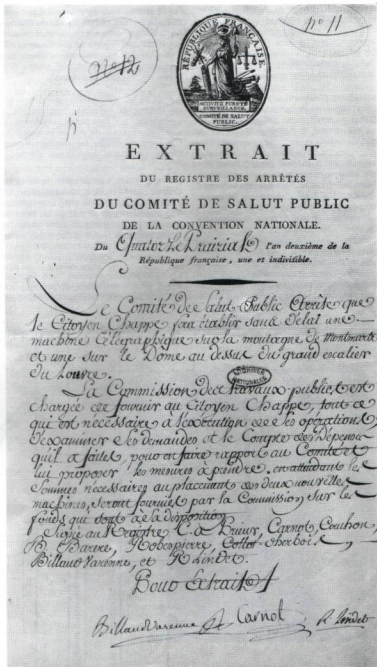 n.º 12
n.º 11
RÉPUBLIQUE FRANÇAISE.
ACTIVITÉ PURETÉ
SURVEILLANCE.
COMITÉ DE SALUT
PUBLIC.
EXTRAIT
DU REGISTRE DES ARRÊTÉS
DU COMITÉ DE SALUT PUBLIC
DE LA CONVENTION NATIONALE.
Du Quatorze Prairial l'an deuxième de la
République française, une et indivisible.
Le Comité de Salut Public Arrête que
le Citoyen Chappe fera établir sans délai une
machine télégraphique sur la montagne de Montmartre
et une sur le Dome au dessus du grand escalier
du Louvre.
ARCHIVES
NATIONALES
La Commission des travaux publics est
chargée de fournir au Citoyen Chappe, tout ce
qui est nécessaire à l'exécution de ses opérations,
d'examiner les demandes et le Compte des Depenses
qu'il a faites, pour en faire rapport au Comité et
lui proposer les mesures à prendre. en attendant les
Sommes nécessaires au placement des deux nouvelles
machines, seront fournies par la Commission sur les
fonds qui sont à sa disposition
Signé au Registre C.A Prieur, Carnot, Couthon,
B. Barere, Robespierre, Collot-d'herbois,
Billaud Varenne, et R. Lindet.
Pour Extrait
Billaud Varenne Carnot R. Lindet